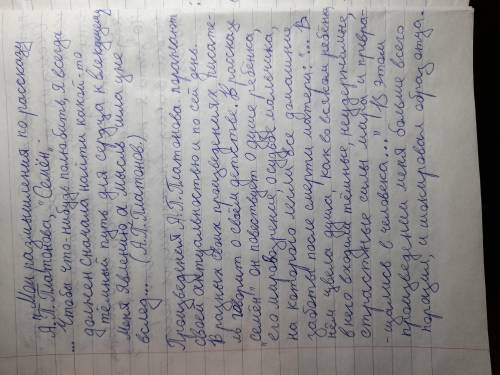 "Мои размышления по рассказу
А.П. Платонова, "Семён".
"Чтобы что-нибудь полюбить, я всегда
должен сначала найти какой-то
тёмный путь для сердца к влекущему
меня явлению, а мысль шла уже
вслед... (А.П. Платонов)
Произведения А.П. Платонова поражают
своей актуальностью и по сей день.
В разных своих произведениях писате-
ль говорит о своём детстве. В рассказе
"Семён" он повествует о душе ребёнка,
его мировоззрении, судьбе мальчика,
на которого легли все домашние
заботы после смерти матери: "... В
нём цвела душа, как во всяком ребёнке,
в него входили тёмные, неудержимые,
страстные силы мира и превра-
-щались в человека..." В этом
произведении меня больше всего
поразил, и шокировал образ отца.